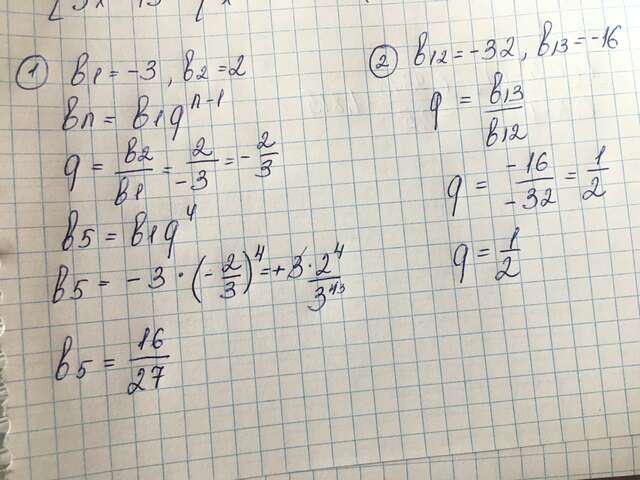 ① b1 = -3, b2 = 2
bn = b1q^(n-1)
q = b2/b1 = 2/-3 = -2/3
b5 = b1q^4
b5 = -3 · (-2/3)^4 = + 3 · 2^4/3^43
b5 = 16/27
② b12 = -32, b13 = -16
q = b13/b12
q = -16/-32 = 1/2
q = 1/2